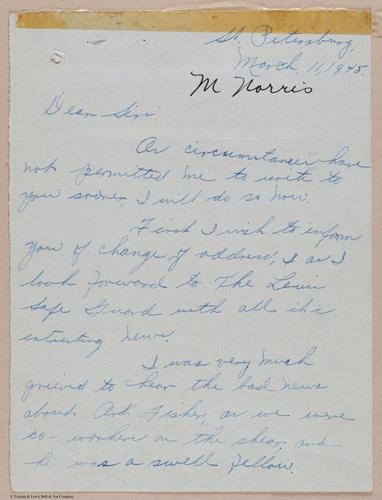 St. Petersburg,
March, 11, 1945.
M Norris
Dear Sir:
As circumstances have
not permitted me to write to
you sooner, I will do so now.
First I wish to inform
you of change of address, I as I
look forward to The Lewis
Safe Guard with all it's
intresting news.
I was very much
grieved to hear the bad news
about Art Fisher, as we were
co-workers on the shear, and
he was a swell fellow.
© Parsons & Lewis Bolt & Nut Company